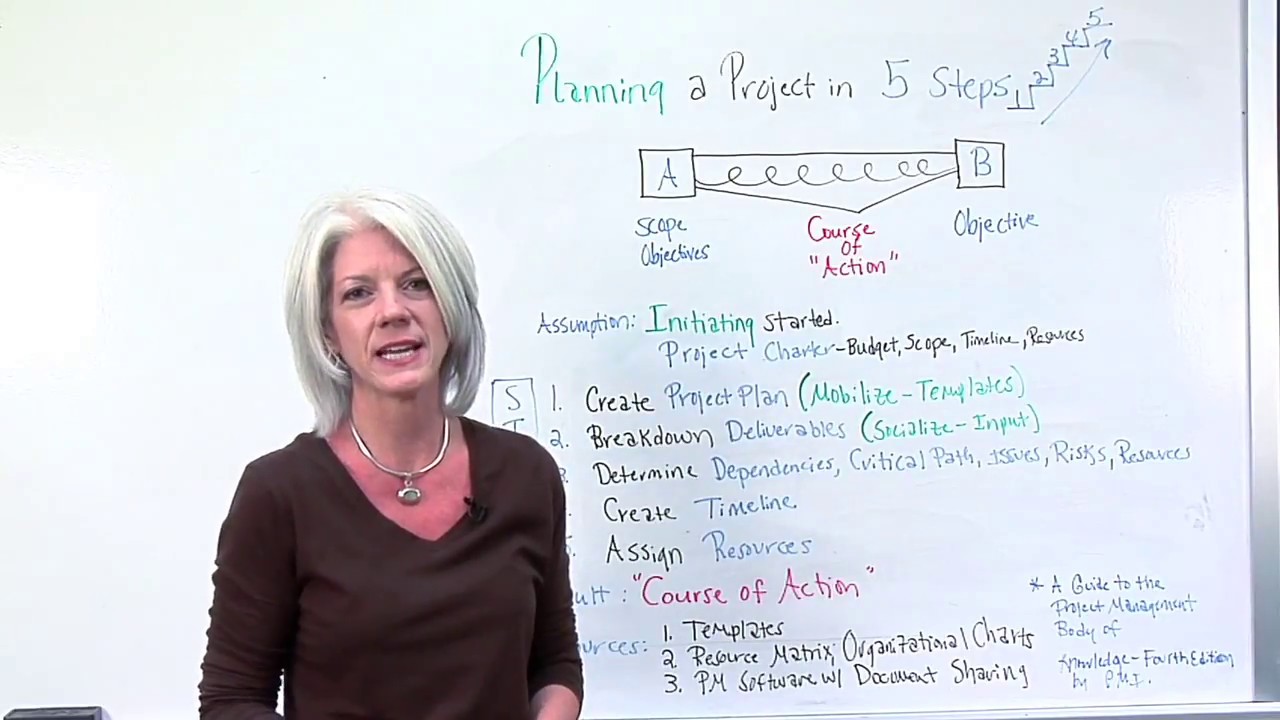 Planning a Project in 5 Steps
1 2 3 4 5
A
B
Scope
Objectives
Course
Of
"Action"
Objective
Assumption: Initiating started.
Project Charter - Budget, Scope, Timeline, Resources
S 1. Create Project Plan (Mobilize - Templates)
T 2. Breakdown Deliverables (Socialize - Input)
Determine Dependencies, Critical Path, Issues, Risks, Resources
Create Timeline
Assign Resources
"Course of Action"
1. Templates
2. Resource Matrix, Organizational Charts
3. PM Software w/ Document Sharing
* A Guide to the
Project Management
Body of
Knowledge - Fourth Edition
by P.M.I.